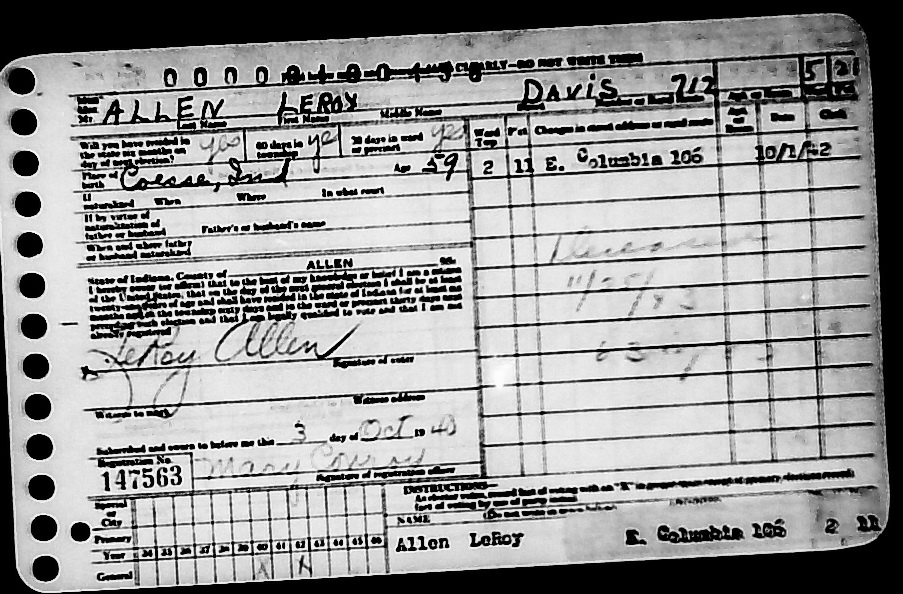 CLEARLY—DO NOT WRITE
ALLEN LEROY DAVIS 712 5 21
Last Name First Name Middle Name
Will you have resided in the state six months on day of next election? yes 60 days in township ye 30 days in ward or precinct yes
Ward Twp Pct Changes in street address or rural route Date Clerk
Place of birth Coesse, Ind Age 59
2 11 E. Columbia 106 10/1/42
If naturalized When Where In what court
If by virtue of naturalization of father or husband Father's or husband's name
When and where father or husband naturalized
Deceased
11/25/43
State of Indiana, County of ALLEN ss.
I hereby swear (or affirm) that to the best of my knowledge or belief I am a citizen
of the United States, that on the day of the next general election I shall be at least
twenty-one years of age and shall have resided in the state of Indiana for at least six
months and in the township sixty days and in the ward or precinct thirty days next
preceding such election and that I am legally qualified to vote and that I am not
already registered
LeRoy Allen
Signature of voter
Witness to mark Witness address
Subscribed and sworn to before me this 3 day of Oct 19 40
Registration No.
147563 Mary Conroy
Signature of registration officer
INSTRUCTIONS—
Special or City
Primary
NAME
Year 34 35 36 37 38 39 40 41 42 43 44 45 46
Allen LeRoy E. Columbia 106 2 11
General X X